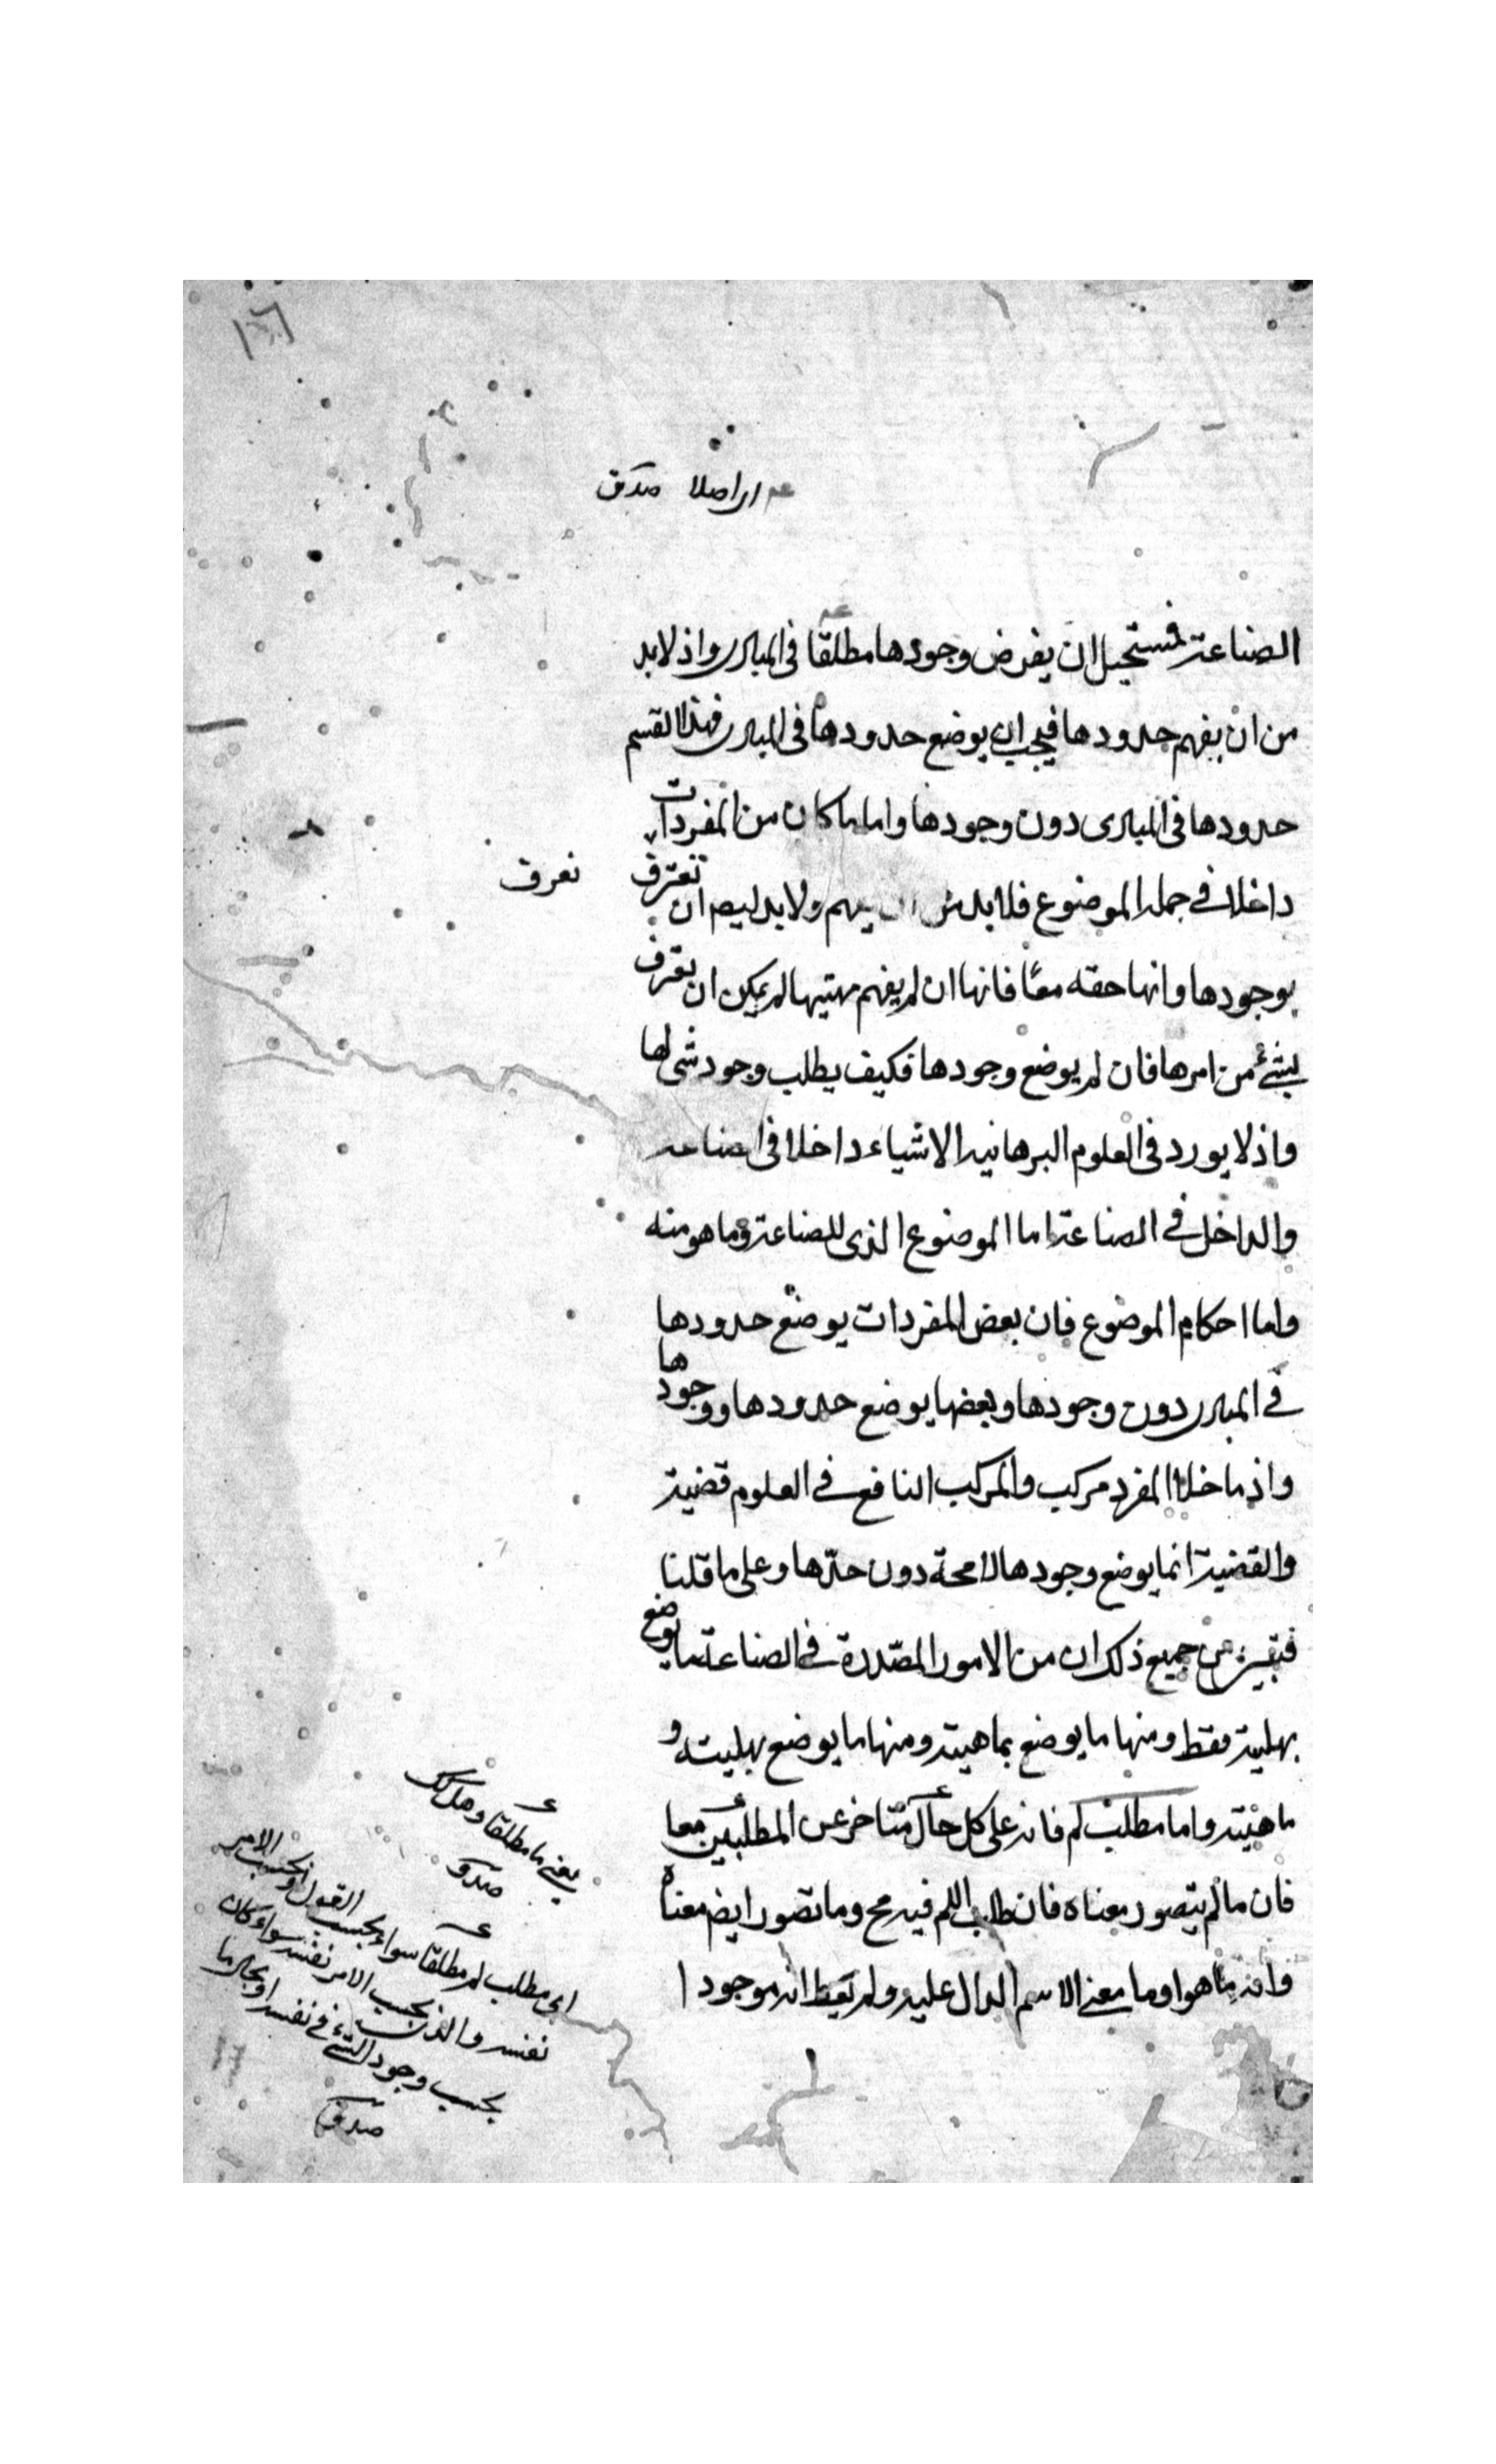 اى اصلا صدق
الصناعة فيستحيل ان يفرض وجودها مطلقا فى المبادى واذ لابد
من ان يفهم حدودها فيجب ان يوضع حدودها فى المبادى فهذا القسم
حدودها فى المبادى دون وجودها واما ما كان من المفردات
داخلا فى جملة الموضوع فلابد من ان يفهم ولابد ايضا ان تعترف
نعرف
بوجودها وانها حقه معًا فانها ان لم يفهم مهيتها لم يمكن ان يعترف
بشئ من امرها فان لم يوضع وجودها فكيف يطلب وجود شى لها
واذ لا يورد فى العلوم البرهانية الا شياء داخلا فى الصناعة
والداخل فى الصناعة اما الموضوع الذى للصناعة وما هو منه
واما احكام الموضوع فان بعض المفردات يوضع حدودها
فى المبادى دون وجودها وبعضها يوضع حدودها ووجودها
واذ ما خلا المفرد مركب والمركب النافع فى العلوم قضية
والقضية انما يوضع وجودها لا محة دون حدّها وعلى ما قلنا
فبقى من جميع ذلك ان من الامور المصدرة فى الصناعة ما يوضع
بهلية فقط ومنها ما يوضع بماهيته ومنها ما يوضع بهليته و
ماهيته واما مطلب لم فانه على كل حال متاخر عن المطلبين معا
فان ما لم يتصور معناه فان طلب اللم فيه مح وما تصور ايضم معناه
وانه ما هو او ما معنى الاسم الدال عليه ولم يعط انه موجود ا
يعنى ما مطلقا وهل كك
صدق
اى مطلب لم مطلقا سواء بحسب القول او بحسب الامر
نفسه والذى بحسب الامر نفسه سواء كان
بحسب وجود الشئ فى نفسه او بحال ما
صدق